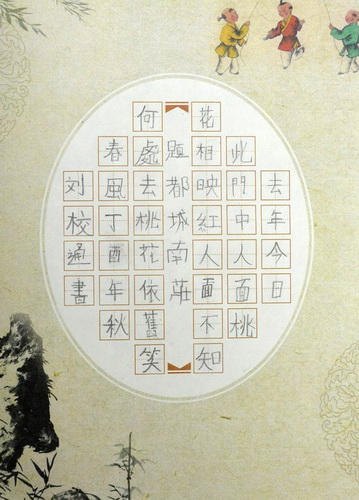 去年今日
此門中人面桃
花相映紅人面不知
題都城南莊
何處去桃花依舊笑
春風丁酉年秋
刘校通書